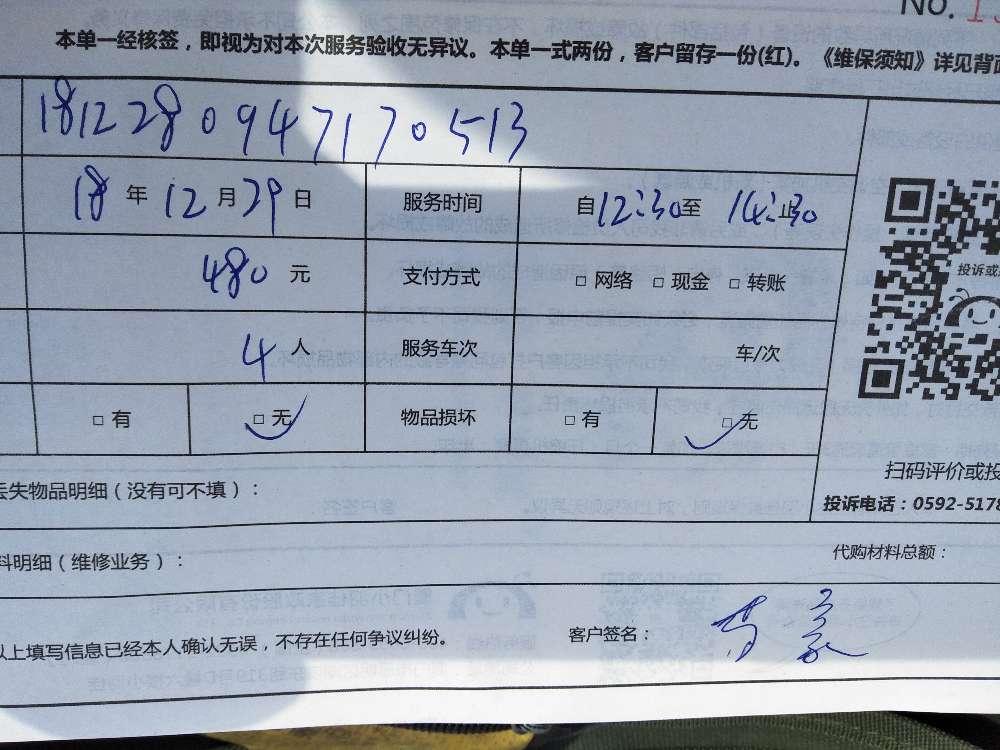 No. 1
本单一经核签，即视为对本次服务验收无异议。本单一式两份，客户留存一份(红)。《维保须知》详见背面
181228094717051​3
18 年 12 月 29 日 服务时间 自 12:30 至 14:30 止
480 元 支付方式 □ 网络 □ 现金 □ 转账
4 人 服务车次 车/次
□ 有 □ 无 物品损坏 □ 有 □ 无
投诉或
扫码评价或投
丢失物品明细（没有可不填）：
投诉电话：0592-5178
料明细（维修业务）： 代购材料总额：
以上填写信息已经本人确认无误，不存在任何争议纠纷。 客户签名：